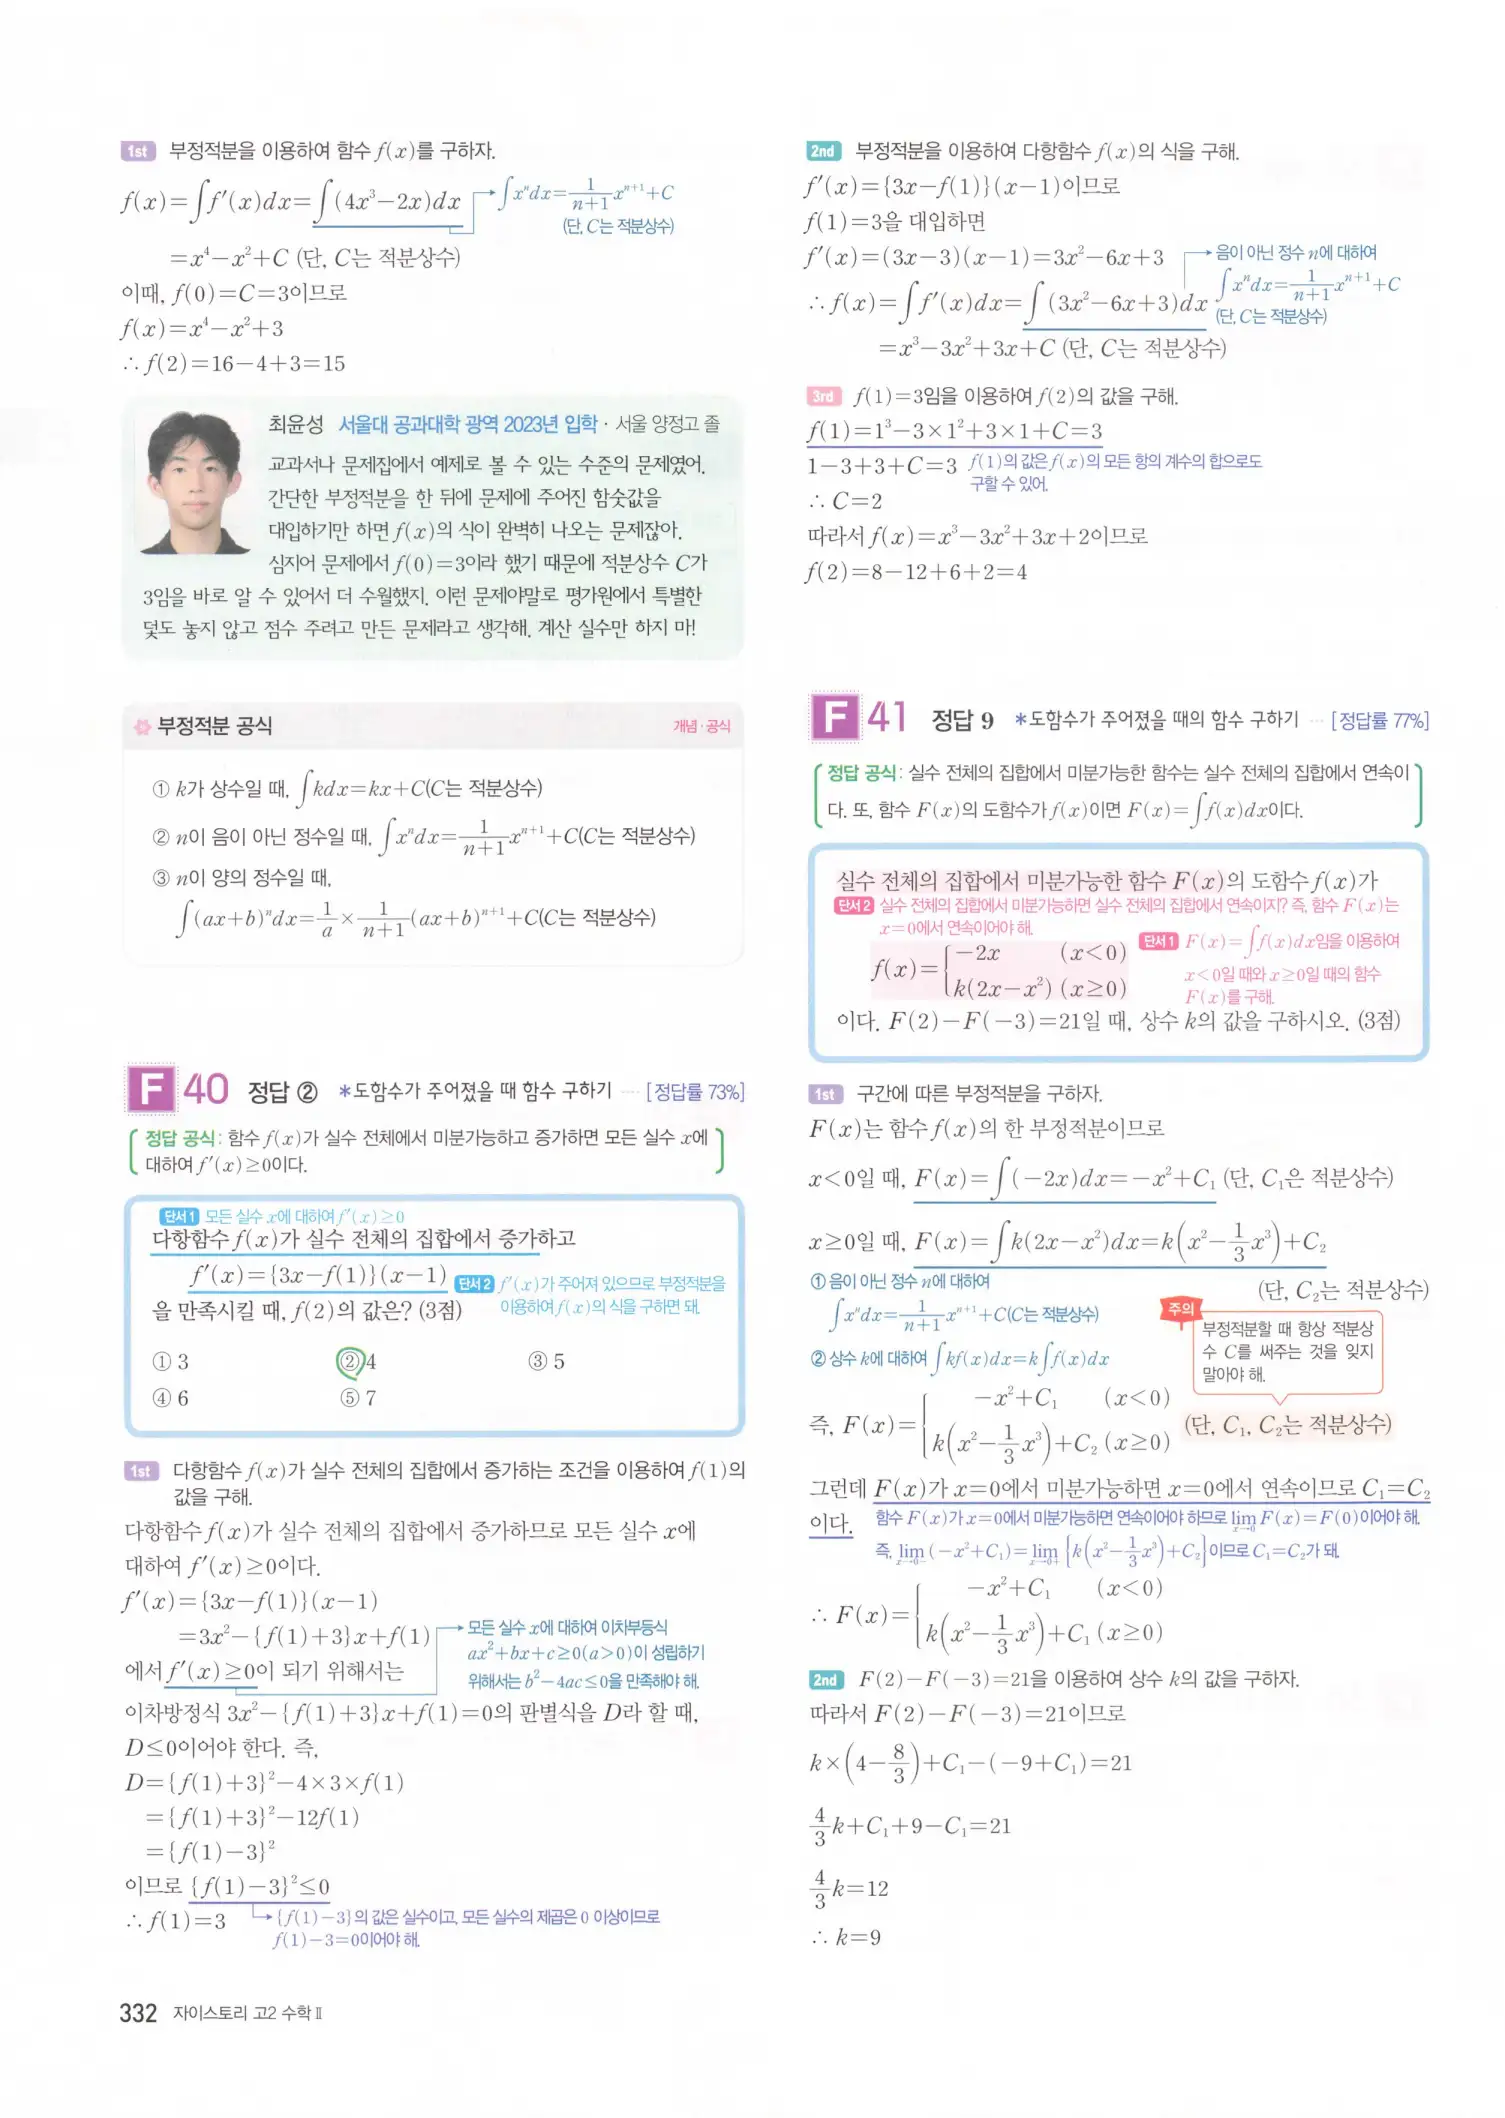 1st 부정적분을 이용하여 함수 f(x)를 구하자.
f(x)=∫f′(x)dx=∫(4x³−2x)dx → ∫xⁿdx=1/(n+1) xⁿ⁺¹+C
(단, C는 적분상수)
=x⁴−x²+C (단, C는 적분상수)
이때, f(0)=C=3이므로
f(x)=x⁴−x²+3
∴ f(2)=16−4+3=15
최윤성 서울대 공과대학 광역 2023년 입학 · 서울 양정고 졸
교과서나 문제집에서 예제로 볼 수 있는 수준의 문제였어.
간단한 부정적분을 한 뒤에 문제에 주어진 함숫값을
대입하기만 하면 f(x)의 식이 완벽히 나오는 문제잖아.
심지어 문제에서 f(0)=3이라 했기 때문에 적분상수 C가
3임을 바로 알 수 있어서 더 수월했지. 이런 문제야말로 평가원에서 특별한
덫도 놓지 않고 점수 주려고 만든 문제라고 생각해. 계산 실수만 하지 마!
부정적분 공식 개념·공식
① k가 상수일 때, ∫kdx=kx+C(C는 적분상수)
② n이 음이 아닌 정수일 때, ∫xⁿdx=1/(n+1) xⁿ⁺¹+C(C는 적분상수)
③ n이 양의 정수일 때,
∫(ax+b)ⁿdx=1/a×1/(n+1)(ax+b)ⁿ⁺¹+C(C는 적분상수)
F 40 정답 ② *도함수가 주어졌을 때 함수 구하기 ···· [정답률 73%]
정답 공식: 함수 f(x)가 실수 전체에서 미분가능하고 증가하면 모든 실수 x에
대하여 f′(x)≥0이다.
단서1 모든 실수 x에 대하여 f′(x)≥0
다항함수 f(x)가 실수 전체의 집합에서 증가하고
f′(x)={3x−f(1)}(x−1) 단서2 f′(x)가 주어져 있으므로 부정적분을
을 만족시킬 때, f(2)의 값은? (3점) 이용하여 f(x)의 식을 구하면 돼.
① 3 ② 4 ③ 5
④ 6 ⑤ 7
1st 다항함수 f(x)가 실수 전체의 집합에서 증가하는 조건을 이용하여 f(1)의
값을 구해.
다항함수 f(x)가 실수 전체의 집합에서 증가하므로 모든 실수 x에
대하여 f′(x)≥0이다.
f′(x)={3x−f(1)}(x−1)
=3x²−{f(1)+3}x+f(1) → 모든 실수 x에 대하여 이차부등식
ax²+bx+c≥0(a>0)이 성립하기
에서 f′(x)≥0이 되기 위해서는 위해서는 b²−4ac≤0을 만족해야 해.
이차방정식 3x²−{f(1)+3}x+f(1)=0의 판별식을 D라 할 때,
D≤0이어야 한다. 즉,
D={f(1)+3}²−4×3×f(1)
={f(1)+3}²−12f(1)
={f(1)−3}²
이므로 {f(1)−3}²≤0
∴ f(1)=3 → {f(1)−3}의 값은 실수이고, 모든 실수의 제곱은 0 이상이므로
f(1)−3=0이어야 해.
332 자이스토리 고2 수학Ⅱ
2nd 부정적분을 이용하여 다항함수 f(x)의 식을 구해.
f′(x)={3x−f(1)}(x−1)이므로
f(1)=3을 대입하면
f′(x)=(3x−3)(x−1)=3x²−6x+3 → 음이 아닌 정수 n에 대하여
∴ f(x)=∫f′(x)dx=∫(3x²−6x+3)dx ∫xⁿdx=1/(n+1) xⁿ⁺¹+C
(단, C는 적분상수)
=x³−3x²+3x+C (단, C는 적분상수)
3rd f(1)=3임을 이용하여 f(2)의 값을 구해.
f(1)=1³−3×1²+3×1+C=3
1−3+3+C=3 f(1)의 값은 f(x)의 모든 항의 계수의 합으로도
구할 수 있어.
∴ C=2
따라서 f(x)=x³−3x²+3x+2이므로
f(2)=8−12+6+2=4
F 41 정답 9 *도함수가 주어졌을 때의 함수 구하기 ··· [정답률 77%]
정답 공식: 실수 전체의 집합에서 미분가능한 함수는 실수 전체의 집합에서 연속이
다. 또, 함수 F(x)의 도함수가 f(x)이면 F(x)=∫f(x)dx이다.
실수 전체의 집합에서 미분가능한 함수 F(x)의 도함수 f(x)가
단서2 실수 전체의 집합에서 미분가능하면 실수 전체의 집합에서 연속이지? 즉, 함수 F(x)는
x=0에서 연속이어야 해.
f(x)={−2x (x<0) 단서1 F(x)=∫f(x)dx임을 이용하여
k(2x−x²) (x≥0) x<0일 때와 x≥0일 때의 함수
F(x)를 구해.
이다. F(2)−F(−3)=21일 때, 상수 k의 값을 구하시오. (3점)
1st 구간에 따른 부정적분을 구하자.
F(x)는 함수 f(x)의 한 부정적분이므로
x<0일 때, F(x)=∫(−2x)dx=−x²+C₁ (단, C₁은 적분상수)
x≥0일 때, F(x)=∫k(2x−x²)dx=k(x²−1/3 x³)+C₂
① 음이 아닌 정수 n에 대하여 (단, C₂는 적분상수)
∫xⁿdx=1/(n+1) xⁿ⁺¹+C(C는 적분상수)
② 상수 k에 대하여 ∫kf(x)dx=k∫f(x)dx
주의
부정적분할 때 항상 적분상
수 C를 써주는 것을 잊지
말아야 해.
즉, F(x)={−x²+C₁ (x<0)
k(x²−1/3 x³)+C₂ (x≥0) (단, C₁, C₂는 적분상수)
그런데 F(x)가 x=0에서 미분가능하면 x=0에서 연속이므로 C₁=C₂
이다. 함수 F(x)가 x=0에서 미분가능하면 연속이어야 하므로 lim x→0 F(x)=F(0)이어야 해.
즉, lim x→0− (−x²+C₁)=lim x→0+ {k(x²−1/3 x³)+C₂}이므로 C₁=C₂가 돼.
∴ F(x)={−x²+C₁ (x<0)
k(x²−1/3 x³)+C₁ (x≥0)
2nd F(2)−F(−3)=21을 이용하여 상수 k의 값을 구하자.
따라서 F(2)−F(−3)=21이므로
k×(4−8/3)+C₁−(−9+C₁)=21
4/3 k+C₁+9−C₁=21
4/3 k=12
∴ k=9